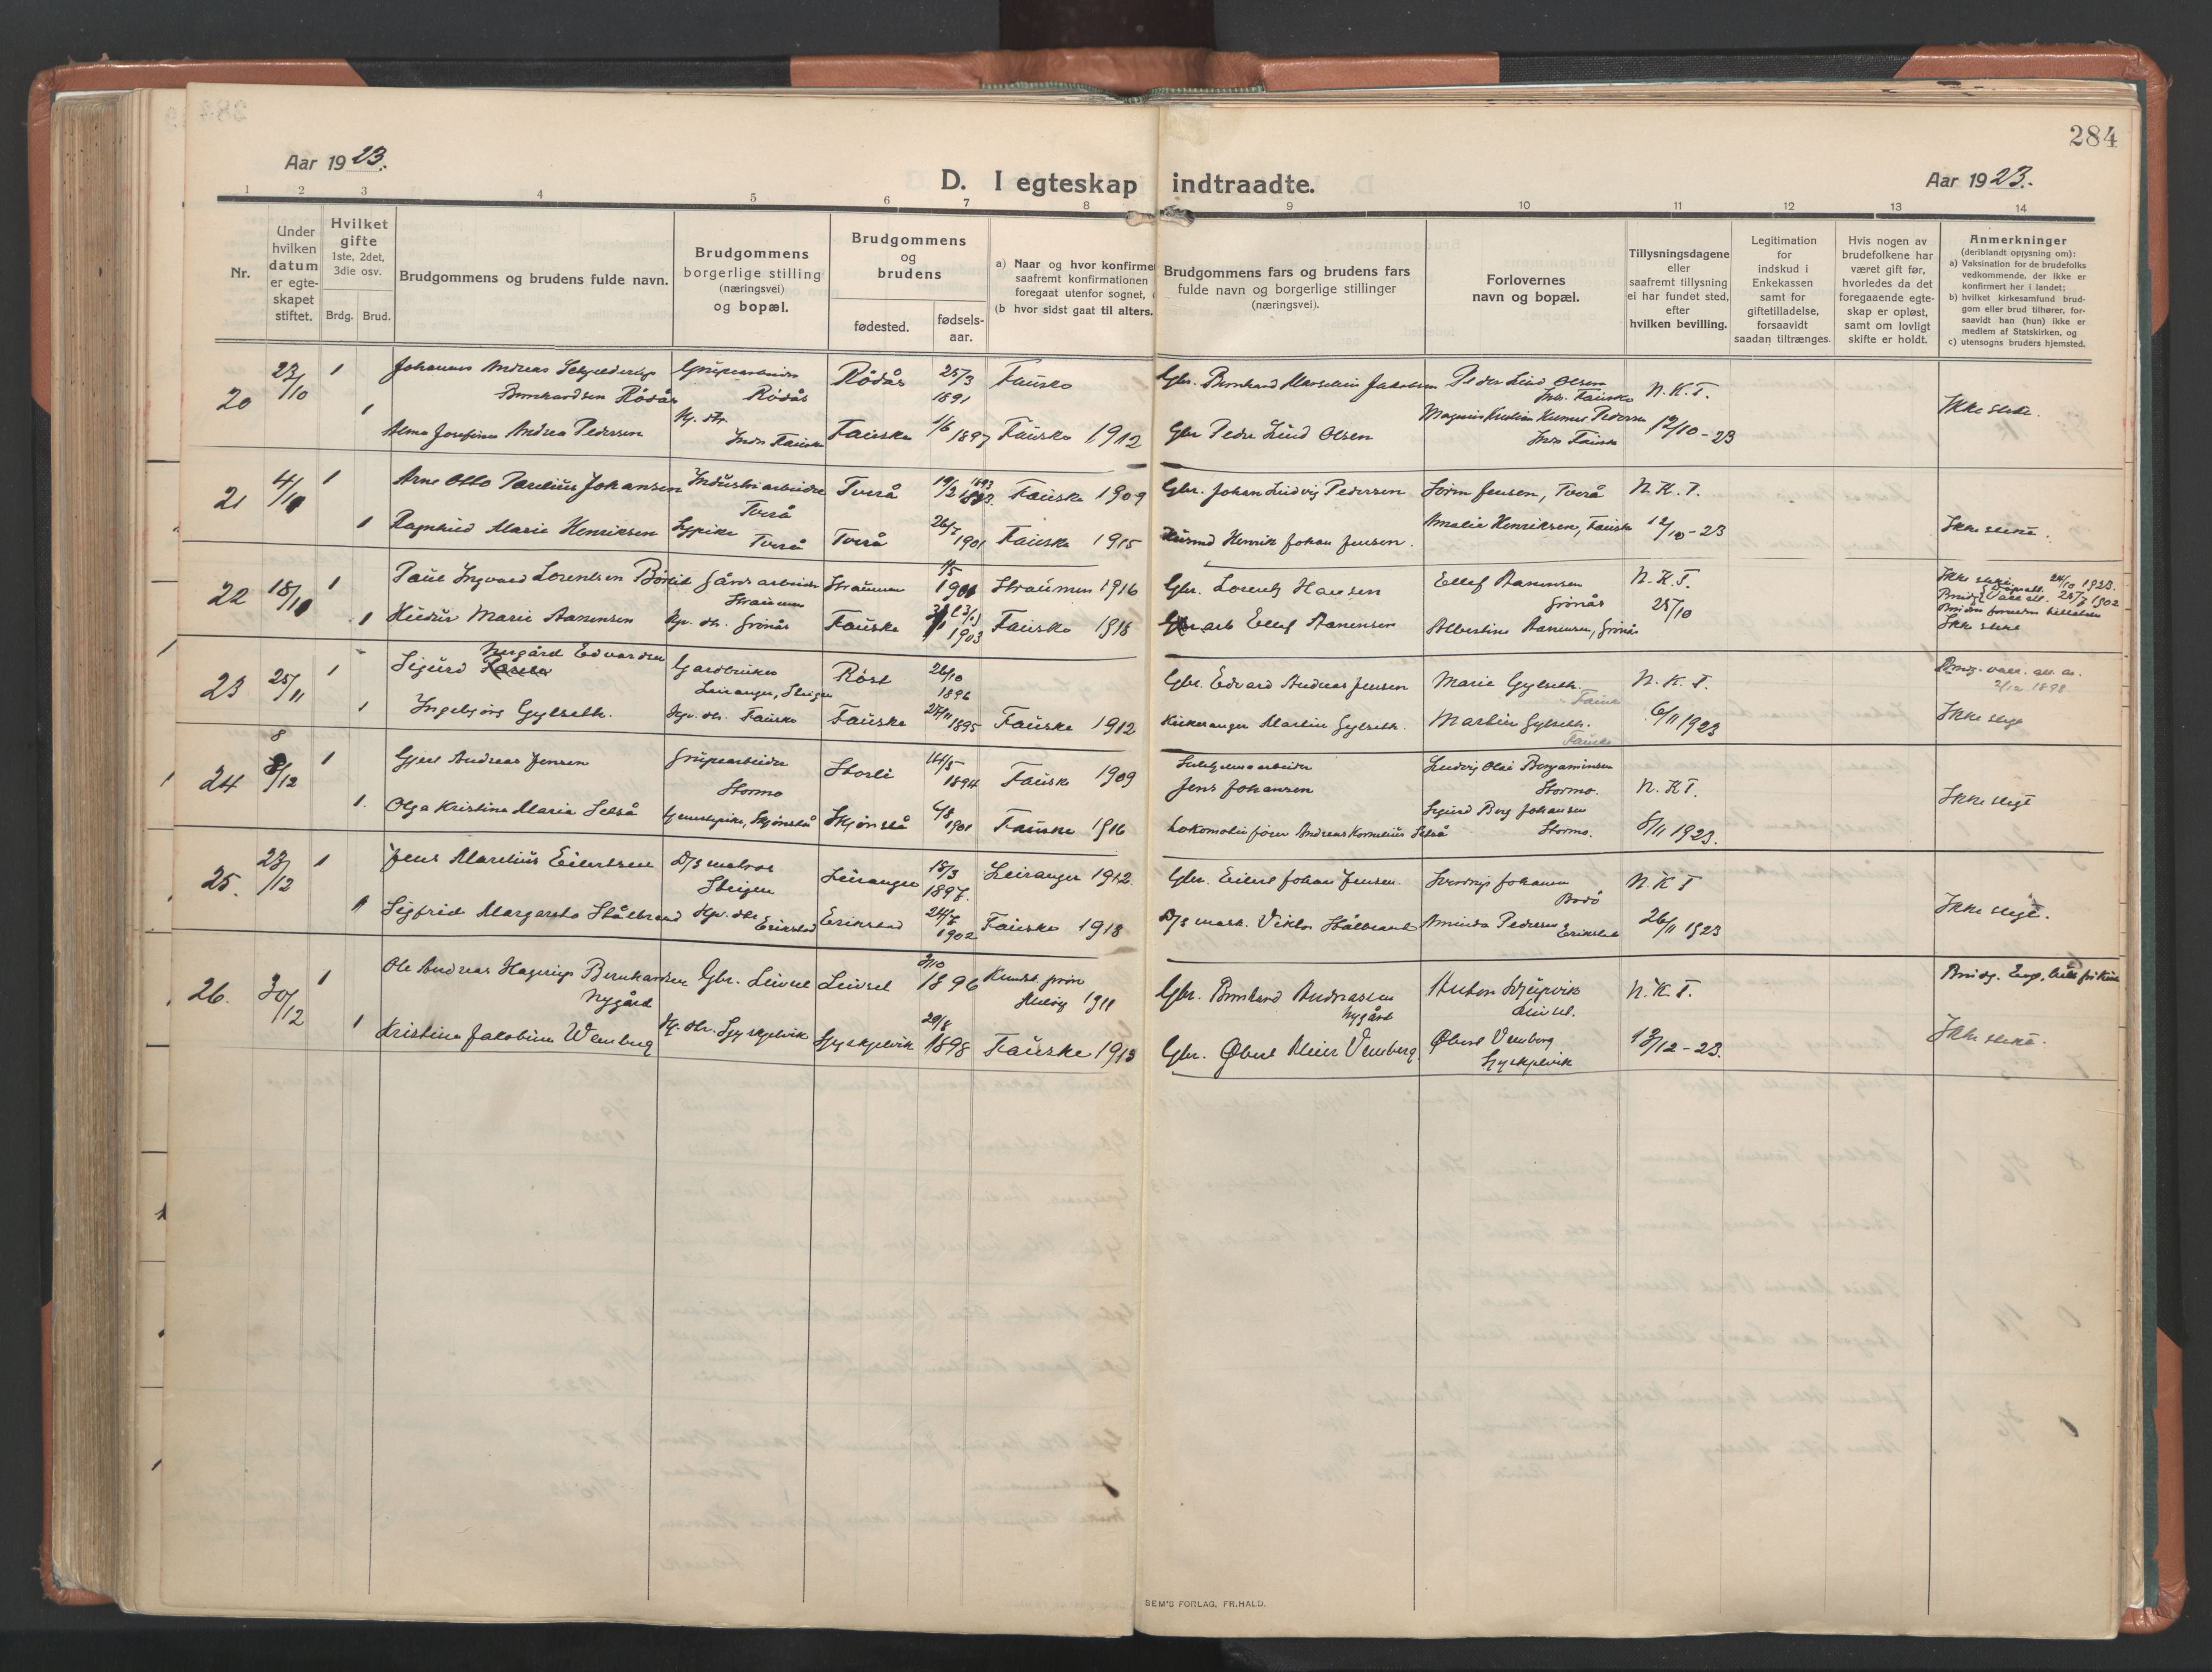 284
Aar 1923.
D. I egteskap indtraadte.
Aar 1923.
1 2 3 4 5 6 7 8 9 10 11 12 13 14
Nr.
Under hvilken datum er egteskapet stiftet.
Hvilket gifte 1ste, 2det, 3die osv.
Brdg. Brud.
Brudgommens og brudens fulde navn.
Brudgommens borgerlige stilling (næringsvei) og bopæl.
Brudgommens og brudens
fødested.
fødselsaar.
a) Naar og hvor konfirme
saafremt konfirmationen
foregaat utenfor sognet,
(b hvor sidst gaat til alters.
Brudgommens fars og brudens fars
fulde navn og borgerlige stillinger
(næringsvei).
Forlovernes
navn og bopæl.
Tillysningsdagene
eller
saafremt tillysning
ei har fundet sted,
efter
hvilken bevilling.
Legitimation
for
indskud i
Enkekassen
samt for
giftetilladelse,
forsaavidt
saadan tiltrænges.
Hvis nogen av
brudefolkene har
været gift før,
hvorledes da det
foregaaende egte-
skap er opløst,
samt om lovligt
skifte er holdt.
Anmerkninger
(deriblandt oplysning om):
a) Vaksination for de brudefolks
vedkommende, der ikke er
konfirmert her i landet;
b) hvilket kirkesamfund brud-
gom eller brud tilhører, for-
saavidt han (hun) ikke er
medlem af Statskirken, og
c) utensogns bruders hjemsted.
20 23/10 1 Johannes Andreas Schjelderup Bernhardsen Rödås Grubearbeider Rödås Rödås 25/3 1891 Fauske Gbr. Bernhard Peder Lind Olsen Indr. Fauske N.K.T.
1 Alma Josefine Andrea Pedersen Indr. Fauske Fauske 1/6 1897 Fauske 1912 Gbr Peder Lind Olsen Magnus Pedersen Indr Fauske 12/10-23 Ikke slekt.
21 4/11 1 Arne Otto Johansen Industriarbeider Tverå Tverå 19/2 1893 Fauske 1909 Gbr. Johan Ludvig Pedersen Sören Jensen, Tverå N.K.T.
1 Ragnhild Marie Henriksen Sypike Tverå Tverå 26/7 1901 Fauske 1915 Husmd Henrik Johan Jensen. Amalie Henriksen, Fauske 12/10-23 Ikke slekt.
22 18/11 1 Paul Ingvard Lorentsen Gårdsarbeider Straumen Straumen 1901 Straumen 1916 Gbr. Lorentz Hansen Ellef Aanensen Grönås N.K.T.
1 Marie Aanensen Hr. dtr. Grönås Fauske 1903 Fauske 1918 Ellef Aanensen Albertine Aanensen, Grönås 25/10 Ikke slekt
23 25/11 1 Sigurd Nergård Edvardsen Gardbruker Leiranger, Steigen Röst 26/10 1896 Gbr. Edvard Andreas Jensen Marie Gylseth. Fauske N.K.T.
1 Ingebjörg Gylseth. Hr. dtr. Fauske Fauske 1895 Fauske 1912 Kirkesanger Martin Gylseth. Martin Gylseth. Fauske 6/11 1923 Ikke slegt
24 8/12 1 Andreas Jensen Grubearbeider Stormo Storli 14/5 1894 Fauske 1909 Jens Johansen Ludvig Olai Benjaminsen Stormo. N.K.T.
1. Olga Kristine Marie Selså Skjönstå Skjönstå 6/8 1901 Fauske 1916 Lokomotivförer Andreas Kornelius Selså Sigurd Berg Johansen Stormo. 8/11 1923. Ikke slegt
25. 23/12 1 Jens Marelius Eilertsen D/S matros Steigen Leiranger 18/3 1897. Leiranger 1912. Gbr. Eilert Johan Jensen. Johansen Bodö N.K.T
1 Sigfrid Margareta Stålbrand Hr. dtr. Erikstad Erikstad 24/7 1902 Fauske 1918 D/S mask. Viktor Stålbrand Aminda Pedersen Erikstad 26/11 1923 Ikke slegt.
26. 30/12 1 Ole Andreas Hagerup Bernhardsen Nygård Gbr. Leivset Leivset 3/10 1896 1911 Gbr. Bernhard Andreassen Nygård Anton Leivset. N.K.T.
1 Kristine Jakobine Wenberg Hr. dtr. Lyskjelvik Lyskjelvik 20/8 1898 Fauske 1913 Gbr. Öbert Meier Venberg Öbert Venberg Lyskjelvik 13/12-23. Ikke slekt.
SEM'S FORLAG, FR.HALD.